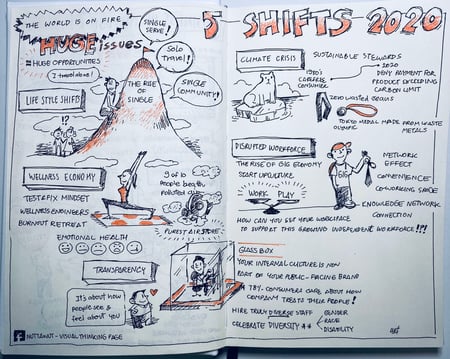 THE WORLD IS ON FIRE
HUGE issues
# HUGE OPPORTUNITIES
I travel alone!
LIFE STYLE SHIFTS
!?
SINGLE SERVE!
SOLO TRAVEL!
SINGLE COMMUNITY!
THE RISE OF SINGLE
WELLNESS ECONOMY
TEST & FIX MINDSET
WELLNESS ENGINEERS
BURNOUT RETREAT
EMOTIONAL HEALTH
9 of 10
PEOPLE breath
polluted air
PUREST AIR STORE
TRANSPARENCY
It's about how
people see &
feel about you
NUTTANUT - VISUAL THINKING PAGE
5 SHIFTS 2020
CLIMATE CRISIS
SUSTAINABLE STEWARDS
1980's
CAREFREE
CONSUMER
2020
DENY PAYMENT FOR
PRODUCT EXCEEDING
CARBON LIMIT
ZERO WASTED
TOKYO MEDAL MADE FROM WASTE
OLYMPIC
METALS
DISRUPTED WORKFORCE
THE RISE OF GIG ECONOMY
START UP CULTURE
WORK PLAY
GIG
NETWORK
EFFECT
CONVENIENCE
CO-WORKING SPACE
KNOWLEDGE NETWORK
CONNECTION
HOW CAN YOU USE YOUR WORKPLACE
TO SUPPORT THIS GROUND INDEPENDENT WORKFORCE!!?!
GLASS BOX
YOUR INTERNAL CULTURE IS NOW
PART OF YOUR PUBLIC-FACING BRAND
CONSUMERS CARE ABOUT HOW
COMPANY TREATS THEIR PEOPLE!
HIRE TRULY DIVERSE STAFF
CELEBRATE DIVERSITY
GENDER
RACE
DISABILITY